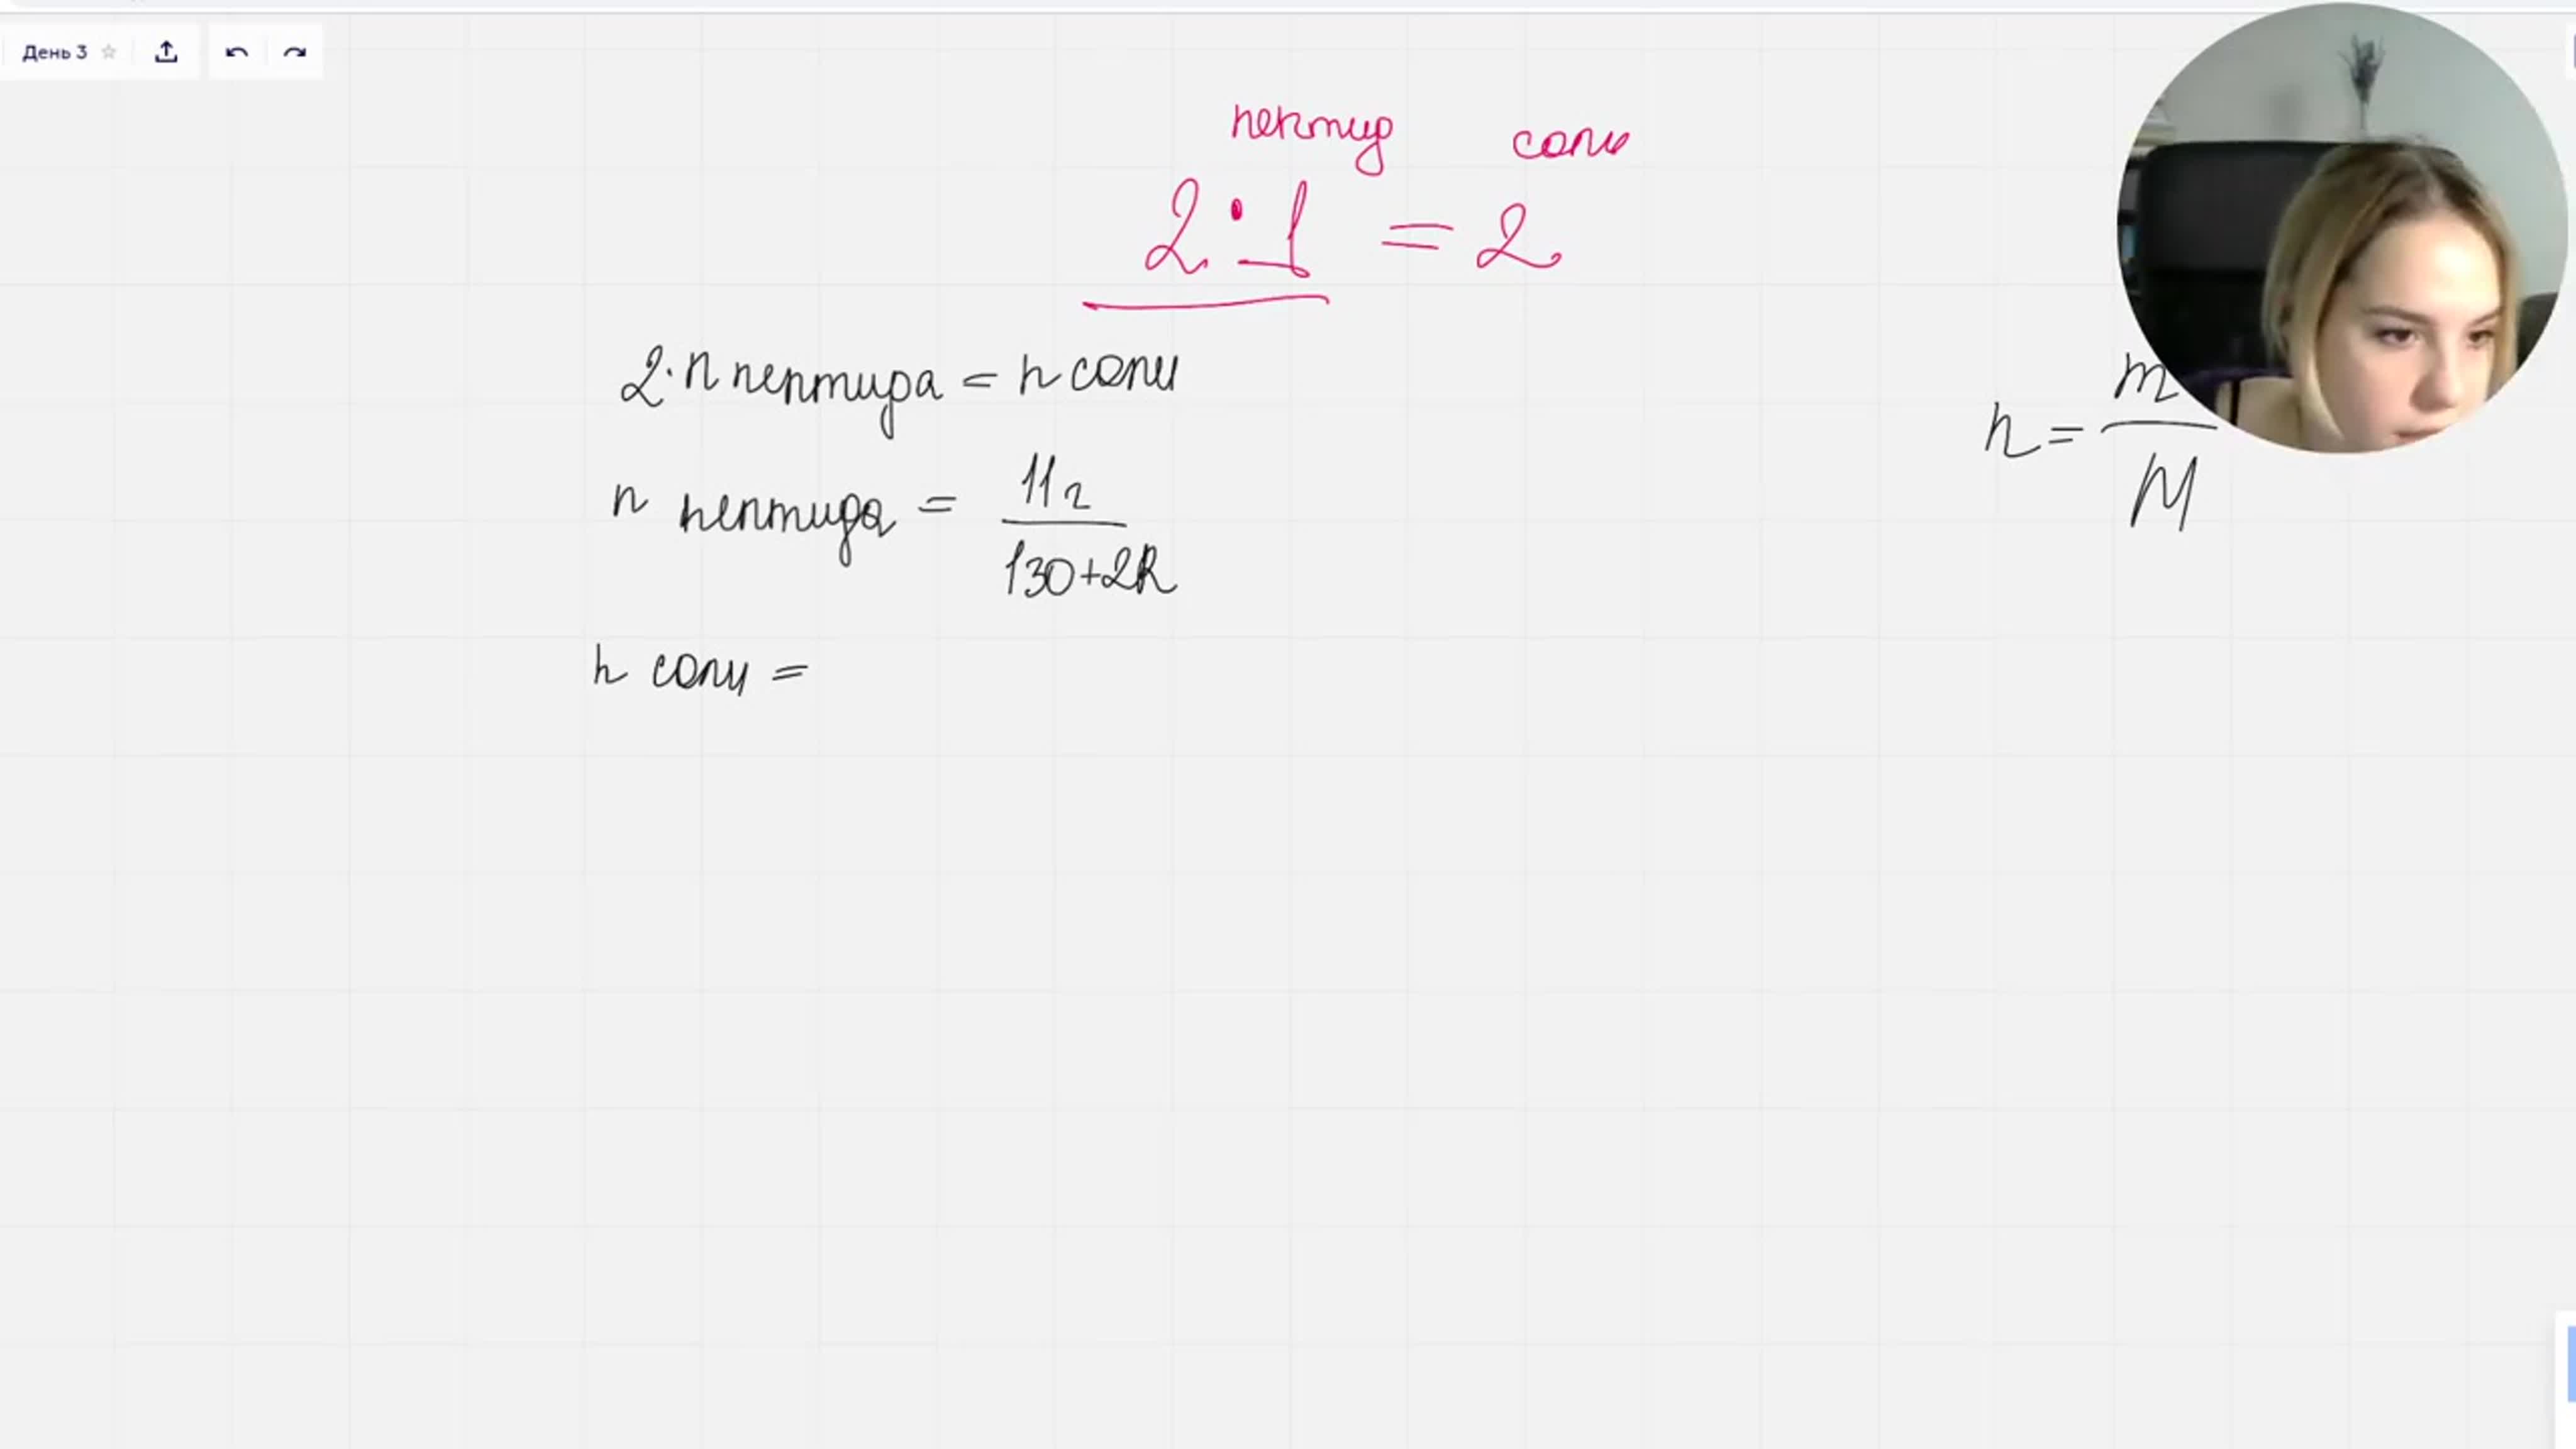 День 3
пептид соли
2·1 = 2
2·n пептида = n соли
n = m/M
n пептида = 11г/130+2R
n соли =